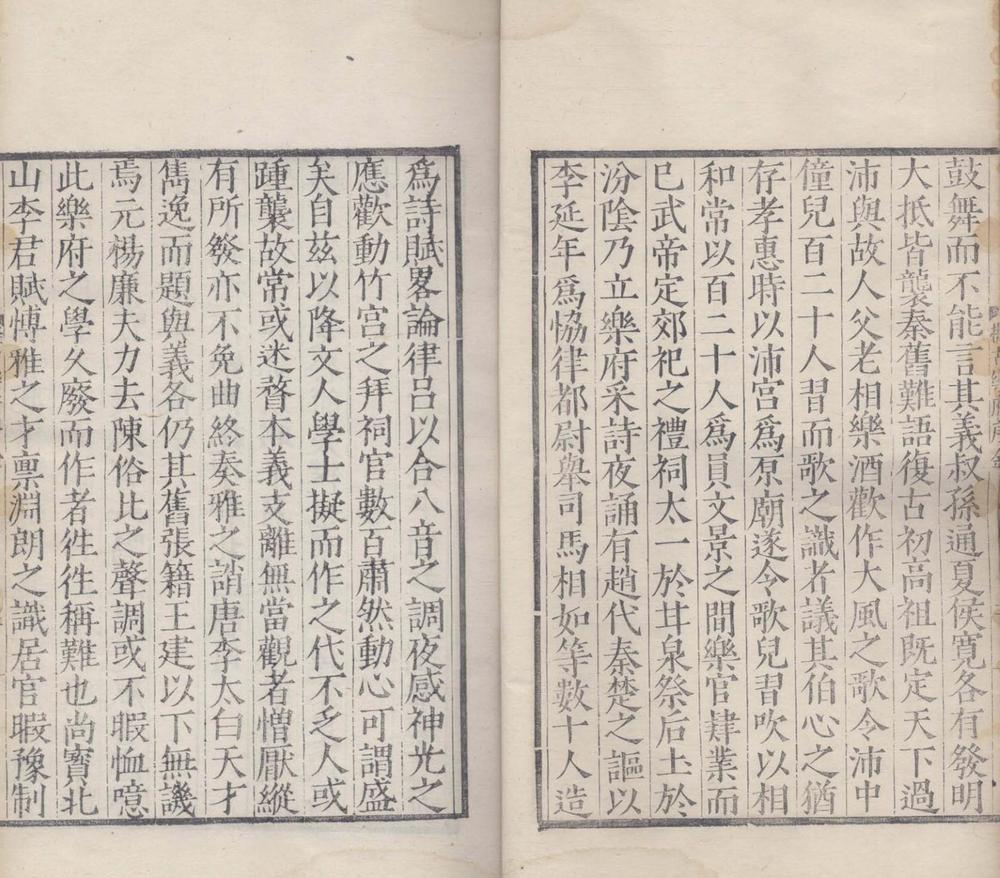 鼓舞而不能言其義叔孫通夏侯寬各有發明
大抵皆襲秦舊難語復古初高祖既定天下過
沛與故人父老相樂酒歡作大風之歌令沛中
僮兒百二十人習而歌之識者議其伯心之猶
存孝惠時以沛宮爲原廟遂令歌兒習吹以相
和常以百二十人爲員文景之間樂官肄業而
巳武帝定郊祀之禮祠太一於甘泉祭后土於
汾陰乃立樂府采詩夜誦有趙代秦楚之謳以
李延年爲恊律都尉舉司馬相如等數十人造
爲詩賦畧論律呂以合八音之調夜感神光之
應歡動竹宮之拜祠官數百肅然動心可謂盛
矣自茲以降文人學士擬而作之代不乏人或
踵襲故常或迷瞀本義支離無當觀者憎厭縱
有所發亦不免曲終奏雅之誚唐李太白天才
雋逸而題與義各仍其舊張籍王建以下無譏
焉元楊廉夫力去陳俗比之聲調或不暇恤噫
此樂府之學久廢而作者徃徃稱難也尚寶北
山李君賦愽雅之才禀淵朗之識居官暇豫制